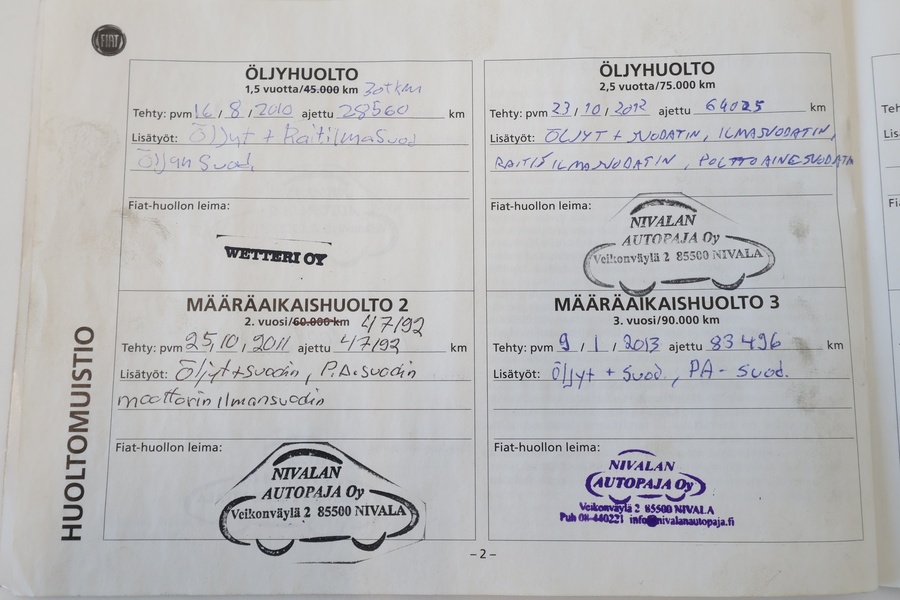 FIAT
HUOLTOMUISTIO
ÖLJYHUOLTO
1,5 vuotta/45.000 km 30tkm
Tehty: pvm 16 / 8 / 2010 ajettu 28560 km
Lisätyöt: Öljyt + Raitilmasuod
Öljyn Suod.
Fiat-huollon leima:
WETTERI OY
ÖLJYHUOLTO
2,5 vuotta/75.000 km
Tehty: pvm 23 / 10 / 2012 ajettu 64025 km
Lisätyöt: ÖLJYT + SUODATIN, ILMASUODATIN,
RAITIS ILMASUODATIN, POLTTOAINESUODATIN
Fiat-huollon leima:
NIVALAN
AUTOPAJA Oy
Veikonväylä 2 85500 NIVALA
MÄÄRÄAIKAISHUOLTO 2
2. vuosi/60.000 km 47192
Tehty: pvm 25, 10, 2011 ajettu 47192 km
Lisätyöt: Öljyt + suodin, P.A. suodin
moottorin ilmansuodin
Fiat-huollon leima:
NIVALAN
AUTOPAJA Oy
Veikonväylä 2 85500 NIVALA
MÄÄRÄAIKAISHUOLTO 3
3. vuosi/90.000 km
Tehty: pvm 9 / 1 / 2013 ajettu 83496 km
Lisätyöt: Öljyt + suod., PA- suod.
Fiat-huollon leima:
NIVALAN
AUTOPAJA Oy
Veikonväylä 2 85500 NIVALA
Puh 08-440221 info@nivalanautopaja.fi
– 2 –
Teh
Lis
Fi